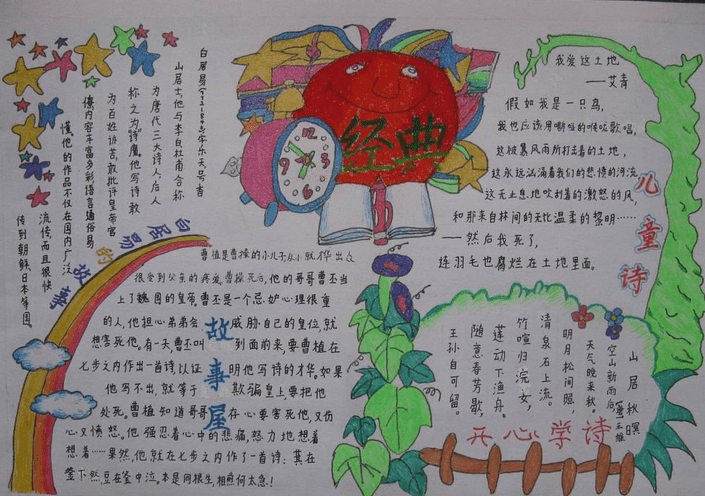 白居易(772-846)字乐天号香
山居士,他与李白杜甫合称
为唐代三大诗人,后人
称之为"诗魔"他写诗敢
为百姓诉苦敢批评皇帝官
僚内容丰富多彩语言通俗易
懂,他的作品不仅在国内广泛
流传,而且很快
传到朝鲜日本等国。
白居易的故事
经典
12
3
6
9
曹植是曹操的小儿子从小就才华出众
很受到父亲的疼爱,曹操死后,他的哥哥曹丕当
上了魏国的皇帝,曹丕是一个忌妒心理很重
的人,他担心弟弟会威胁自己的皇位,就
想害死他。有一天,曹丕叫到面前来,要曹植在
七步之内作出一首诗,以证明他写诗的才华。如果
他写不出,就等于欺骗皇上要把他
处死。曹植知道哥哥存心要害死他,又伤
心又愤怒。他强忍着心中的悲痛,努力地想着
想着……果然,他就在七步之内作了一首诗:萁在
釜下然,豆在釜中泣,本是同根生,相煎何太急!
故事屋
我爱这土地
——艾青
假如我是一只鸟,
我也应该用嘶哑的喉咙歌唱,
这被暴风雨所打击着的土地,
这永远汹涌着我们的悲愤的河流,
这无止息地吹刮着的激怒的风,
和那来自林间的无比温柔的黎明……
——然后我死了,
连羽毛也腐烂在土地里面。
儿童诗
山居秋暝
(唐)王维
空山新雨后,
天气晚来秋。
明月松间照,
清泉石上流。
竹喧归浣女,
莲动下渔舟。
随意春芳歇,
王孙自可留。
开心学诗